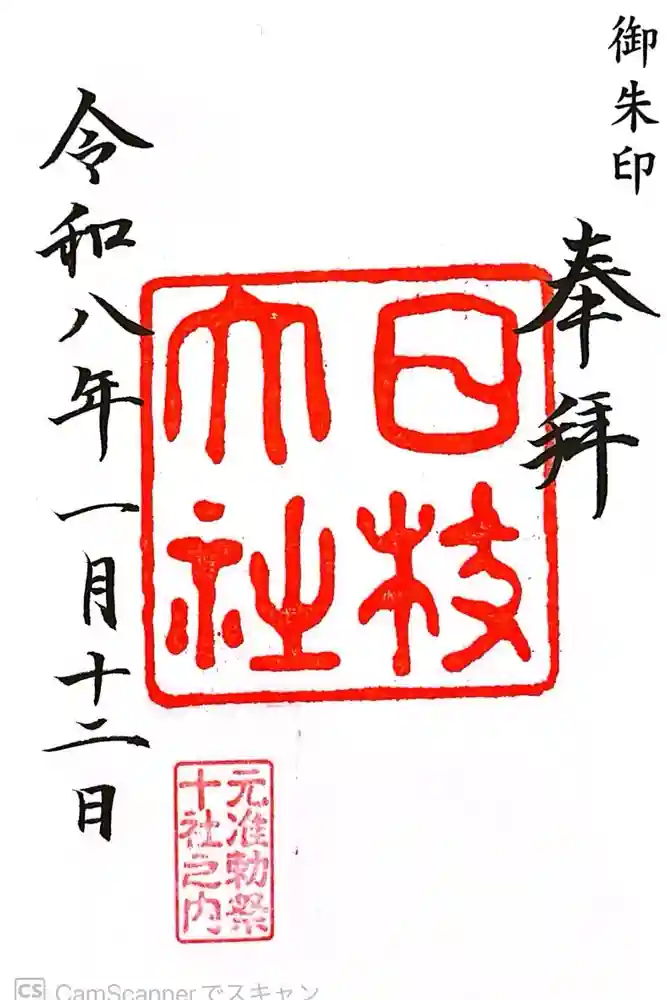 御朱印
奉拝
日枝
大社
令和八年一月十二日
元准勅祭
十社之内
CS CamScannerでスキャン